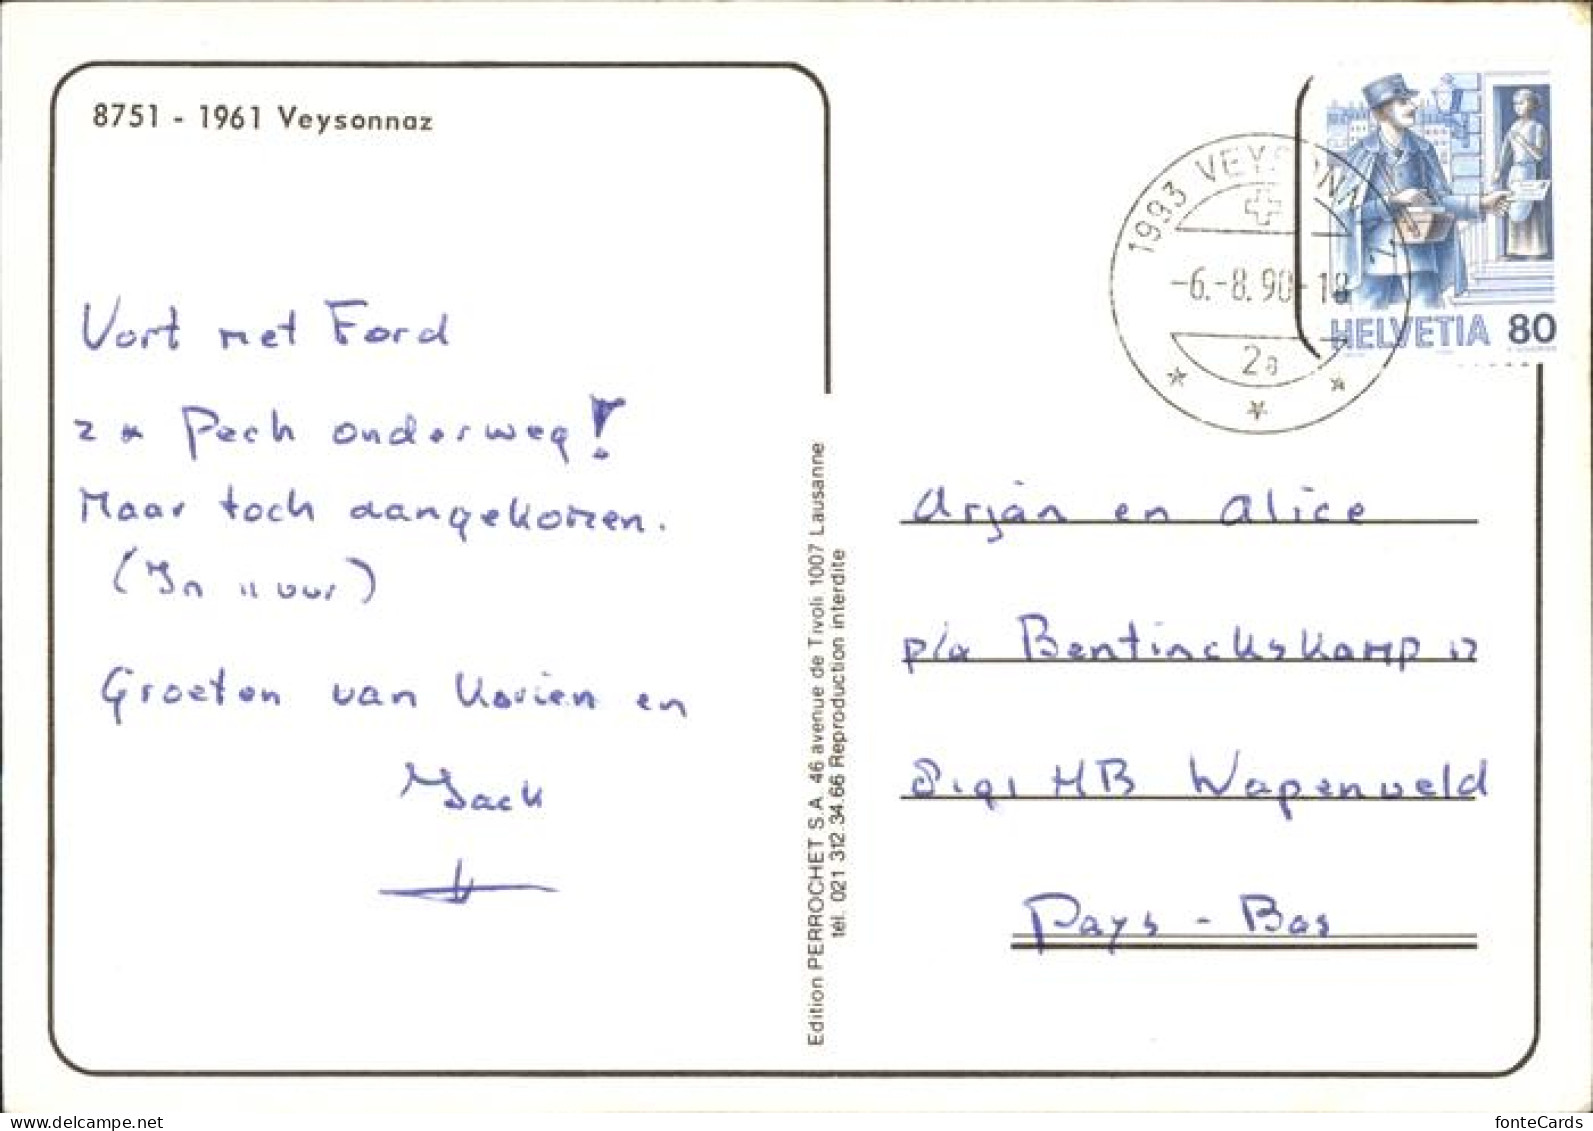 8751 - 1961 Veysonnaz
Vort met Ford
2 x Pech onderweg!
Maar toch aangekomen.
(In 11 uur)
Groeten van Karien en
Jack
Edition PERROCHET S.A. 46 avenue de Tivoli 1007 Lausanne
tél. 021 312.34.66 Reproduction interdite
1993 VEYSONNAZ
-6.-8.90-18
2a
HELVETIA 80
Arjan en Alice
p/a Bentinckskamp 12
8191 HB Wapenveld
Pays - Bas
www.delcampe.net
fonteCards